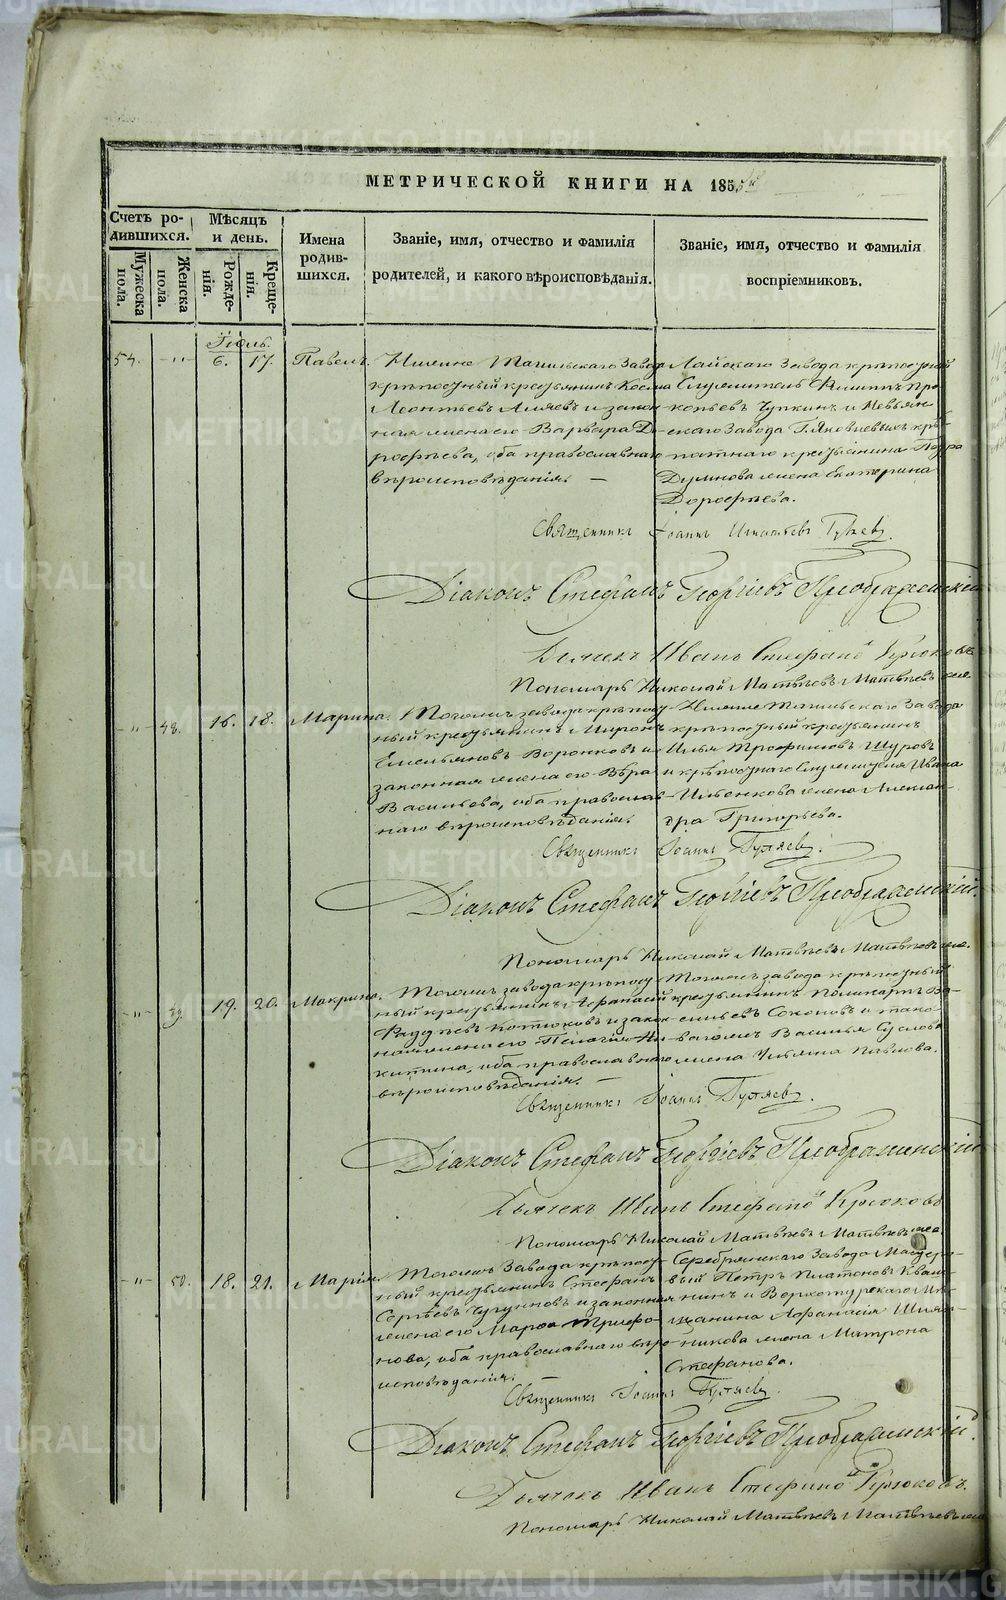 МЕТРИЧЕСКОЙ КНИГИ НА 185
Счетъ родившихся.
Мѣсяцъ и день.
Имена родившихся.
Званіе, имя, отчество и фамилія родителей, и какого вѣроисповѣданія.
Званіе, имя, отчество и фамилія воспріемниковъ.
Мужеска пола.
Женска пола.
Рожденія.
Крещенія.
Іюль.
54. -"- 6. 17. Павелъ.
Нижне Тагильскаго Завода
крѣпостный крестьянинъ Косма
Леонтьевъ и закон-
ная жена его Варвара До-
рофѣева, оба православнаго
вѣроисповѣданія.
Лайскаго Завода крѣпостный
Служитель Филиппъ Про-
копьевъ Чупкинъ и Невьян-
скаго Завода Г. Яковлевыхъ крѣ-
постнаго крестьянина Петра
жена Екатерина
Дорофѣева.
Священникъ Іоаннъ Гуляевъ.
Діаконъ Стефанъ Георгіевъ Преображенскій
Дьячекъ Иванъ Стефановъ Крюковъ
Пономарь Николай Матвѣевъ Матвѣевъ
-"- 48. 16. 18. Марина.
Тогожъ завода крѣпост-
ный крестьянинъ Миронъ
Емельяновъ Воронковъ и
законная жена его Вѣра
Васильева, оба православ-
наго вѣроисповѣданія.
Нижне Тагильскаго Завода
крѣпостный крестьянинъ
Илья Трофимовъ Щуровъ
и крѣпостнаго Служителя Ивана
жена Алексан-
дра Григорьева.
Священникъ Іоаннъ Гуляевъ.
Діаконъ Стефанъ Георгіевъ Преображенскій.
Пономарь Николай Матвѣевъ Матвѣевъ
-"- 49. 19. 20. Макрина.
Тогожъ завода крѣпост-
ный крестьянинъ Афанасій
Фаддѣевъ Котюковъ и закон-
ная жена его Пелагія Ни-
китина, оба православнаго
вѣроисповѣданія.
Тогожъ завода крѣпостный
крестьянинъ Поликарпъ Ва-
сильевъ Соколовъ и тако-
ваго жъ Василья Суслова
жена Ульяна Павлова.
Священникъ Іоаннъ Гуляевъ.
Діаконъ Стефанъ Георгіевъ Преображенскій
Дьячекъ Иванъ Стефановъ Крюковъ
Пономарь Николай Матвѣевъ Матвѣевъ
-"- 50. 18. 21. Марія.
Тогожъ Завода крѣпост-
ный крестьянинъ Стефанъ
Сергѣевъ Чугуновъ и законная
жена его Марѳа Трифо-
нова, оба православнаго вѣро-
исповѣданія.
Серебрянскаго Завода Мастеро-
вый Петръ Платоновъ Кваш-
нинъ и Верхотурскаго мѣ-
щанина Афанасія Шиля-
никова жена Матрона
Стефанова.
Священникъ Іоаннъ Гуляевъ.
Діаконъ Стефанъ Георгіевъ Преображенскій.
Дьячекъ Иванъ Стефановъ Крюковъ.
Пономарь Николай Матвѣевъ Матвѣевъ
METRIKI.GASO-URAL.RU